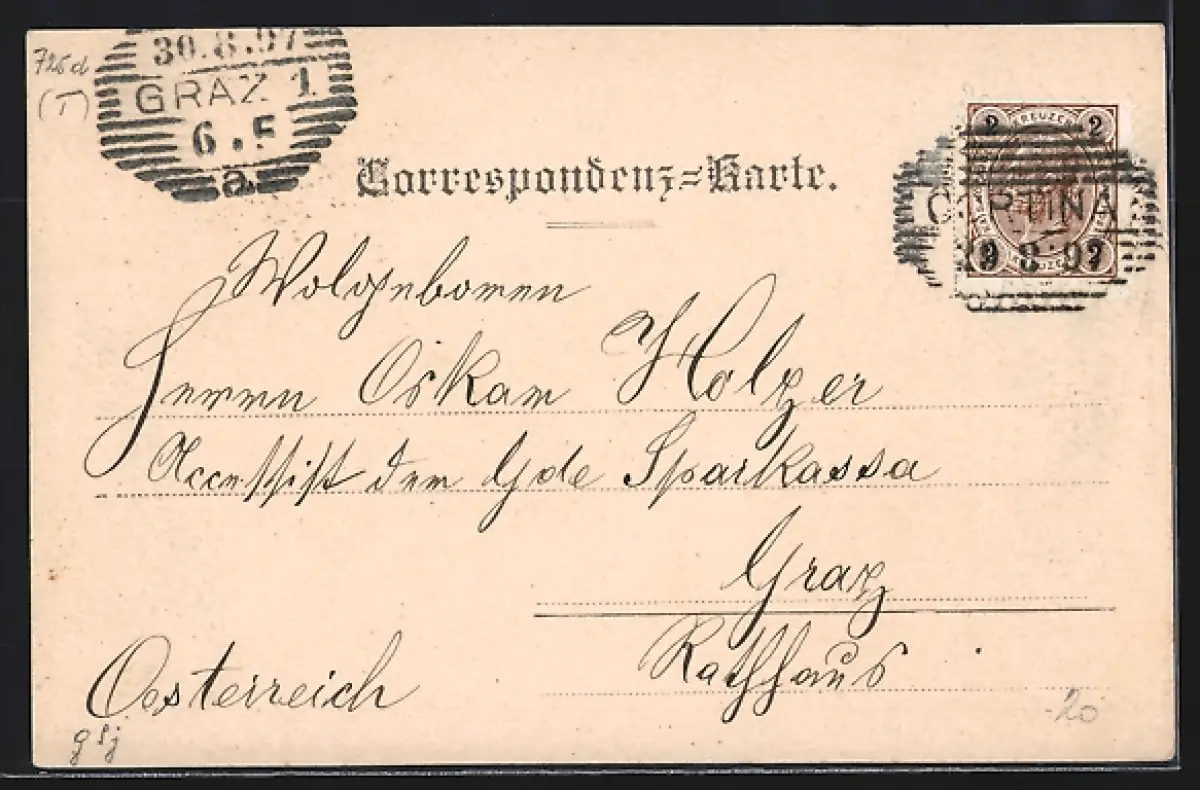 726d
(T)
30.8.97
GRAZ 1
6.F
a
Correspondenz=Karte.
2 KREUZER 2
CORTINA
29 8 97
2 2
Wolgeboren
Herrn Oskar Holzer
Accessist der Gde Sparkassa
Graz
Rathhaus
Oesterreich
-20